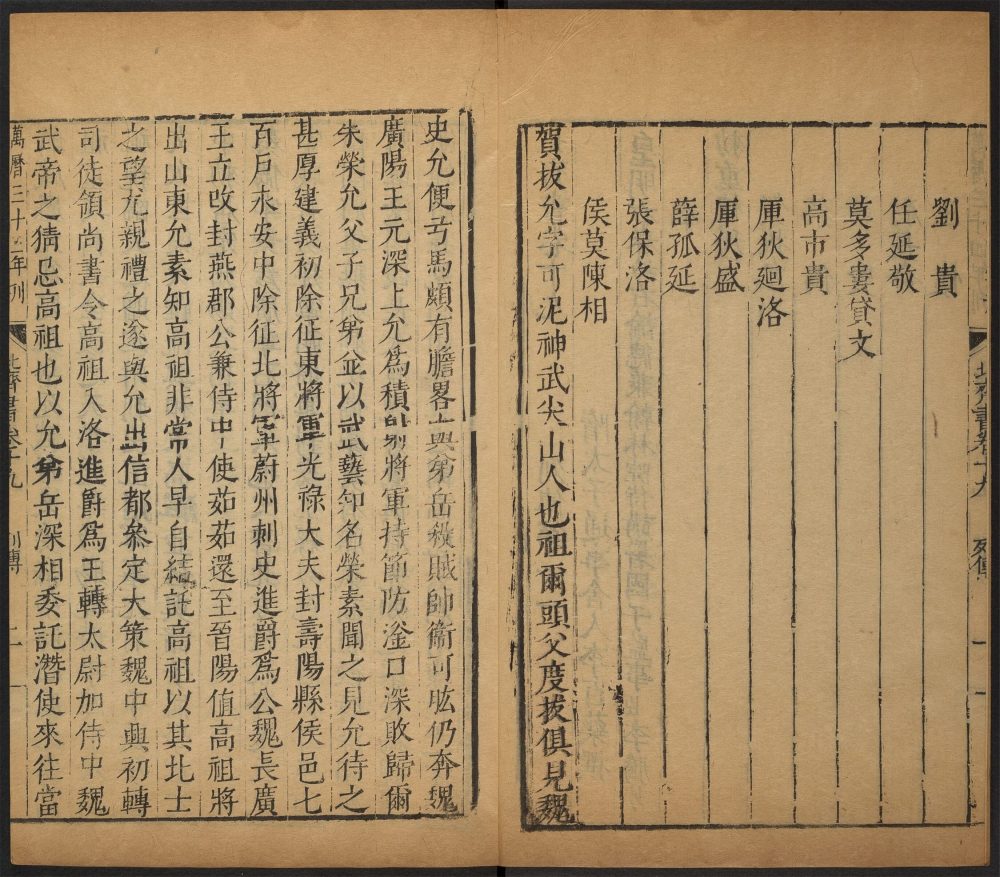 劉 貴
任延敬
莫多婁貸文
高市貴
厙狄廻洛
厙狄盛
薛孤延
張保洛
侯莫陳相
賀拔允字可泥神武尖山人也祖爾頭父度拔俱見魏
北齊書卷十九 列傳 一
史允便弓馬頗有膽畧與弟岳殺賊帥衞可肱仍奔魏
廣陽王元深上允爲積射將軍持節防滏口深敗歸爾
朱榮允父子兄弟並以武藝知名榮素聞之見允待之
甚厚建義初除征東將軍光祿大夫封壽陽縣侯邑七
百戶永安中除征北將軍蔚州刺史進爵爲公魏長廣
王立改封燕郡公兼侍中使茹茹還至晉陽值高祖將
出山東允素知高祖非常人早自結託高祖以其北士
之望尤親禮之遂與允出信都參定大策魏中興初轉
司徒領尚書令高祖入洛進爵爲王轉太尉加侍中魏
武帝之猜忌高祖也以允弟岳深相委託潛使來往當
萬曆三十年刊 北齊書卷十九 列傳 二